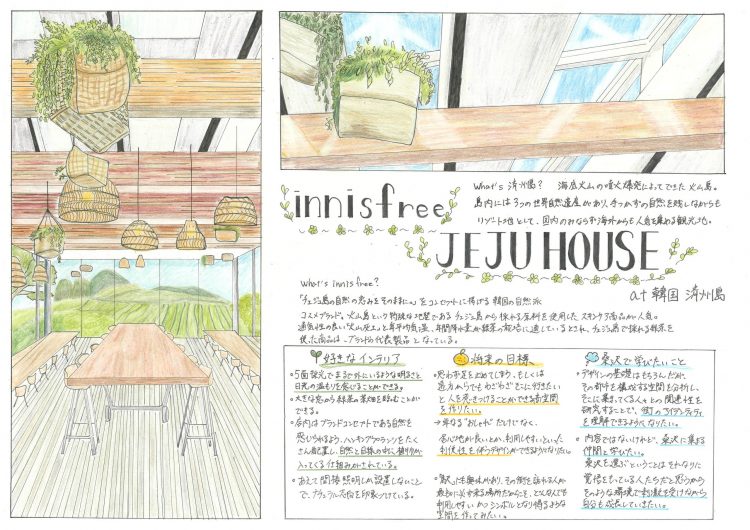 What's 済州島? 海底火山の噴火爆発によってできた火山島。
島内には3つの世界自然遺産があり、手つかずの自然を残しながらも
リゾート地として、国内のみならず海外からも人気を集める観光地。
innisfree
JEJU HOUSE
at 韓国 済州島
What's innisfree?
「チェジュ島の自然の恵みをそのままに。」をコンセプトに掲げる韓国の自然派
コスメブランド。火山島という特殊な地盤であるチェジュ島から採れる原料を使用したスキンケア商品が人気。
通気性の良い「火山灰土」と年平均気温、年間降水量が緑茶の栽培に適しているとされ、チェジュ島で採れる緑茶を
使った商品は、ブランドの代表製品となっている。
好きなインテリア
・5面採光でまるで外にいるような明るさと
日光の温もりを感じることができる。
・大きな窓から緑茶の茶畑を臨むことが
できる。
・店内はブランドコンセプトである自然を
感じられるよう、ハンギングプランツをたく
さん配置し、自然と目線の中に植物が
入ってくる仕組みがされている。
・あえて間接照明しか設置しないこと
で、ナチュラル志向を印象づけている。
将来の目標
・思わず足を止めてしまう、もしくは
遠方からでもわざわざそこに行きたい
と人を惹きつけることができる商空間
を作りたい。
→単なる"おしゃれ"だけでなく、
居心地が良いとか、利用しやすいといった
利便性を伴うデザインができるようになりたい。
最初に必ず来る場所だからこそ、どんな人でも
利用しやすいかつシンボルとなり得るような
空間を作ってみたい。
桑沢で学びたいこと
・デザインの基礎はもちろんだが、
その都市を構成する空間を分析し、
そこに集まってくる人々との関連性を
研究することで、街のアイデンティティ
を理解できるようになりたい。
・内容ではないけれど、桑沢に集まる
仲間と学びたい。
桑沢を選ぶということはそれなりに
覚悟をもっている人たちだと思うから
そのような環境で刺激を受けながら
自分も成長していきたい。